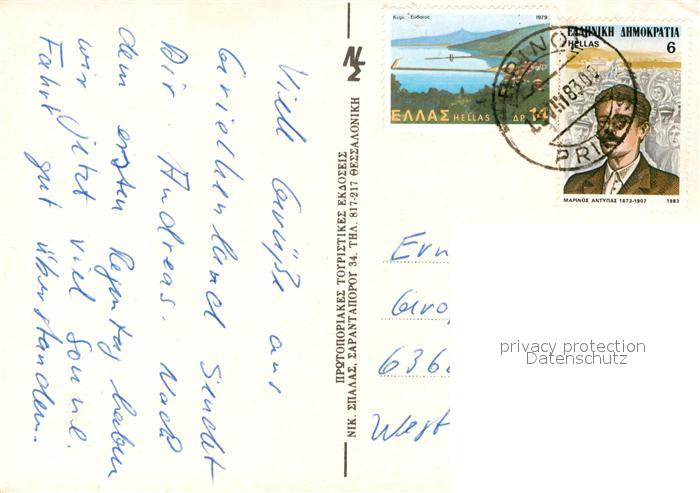 Viele Grüße aus
Griechenland sendet
Dir Andreas. Nach
dem ersten Regentag haben
wir jetzt viel Sonne.
Fahrt gut überstanden.
ΠΡΩΤΟΠΟΡΙΑΚΕΣ ΤΟΥΡΙΣΤΙΚΕΣ ΕΚΔΟΣΕΙΣ
ΝΙΚ. ΣΠΑΛΑΣ, ΣΑΡΑΝΤΑΠΟΡΟΥ 34. ΤΗΛ. 817-217 ΘΕΣΣΑΛΟΝΙΚΗ
1979
ΕΛΛΑΣ HELLAS ΔΡ 14
ΕΛΛΗΝΙΚΗ ΔΗΜΟΚΡΑΤΙΑ
HELLAS 6
ΜΑΡΙΝΟΣ ΑΝΤΥΠΑΣ 1873-1907 1983
ΠΡΙΝΟΣ
PRI
636
West
privacy protection
Datenschutz